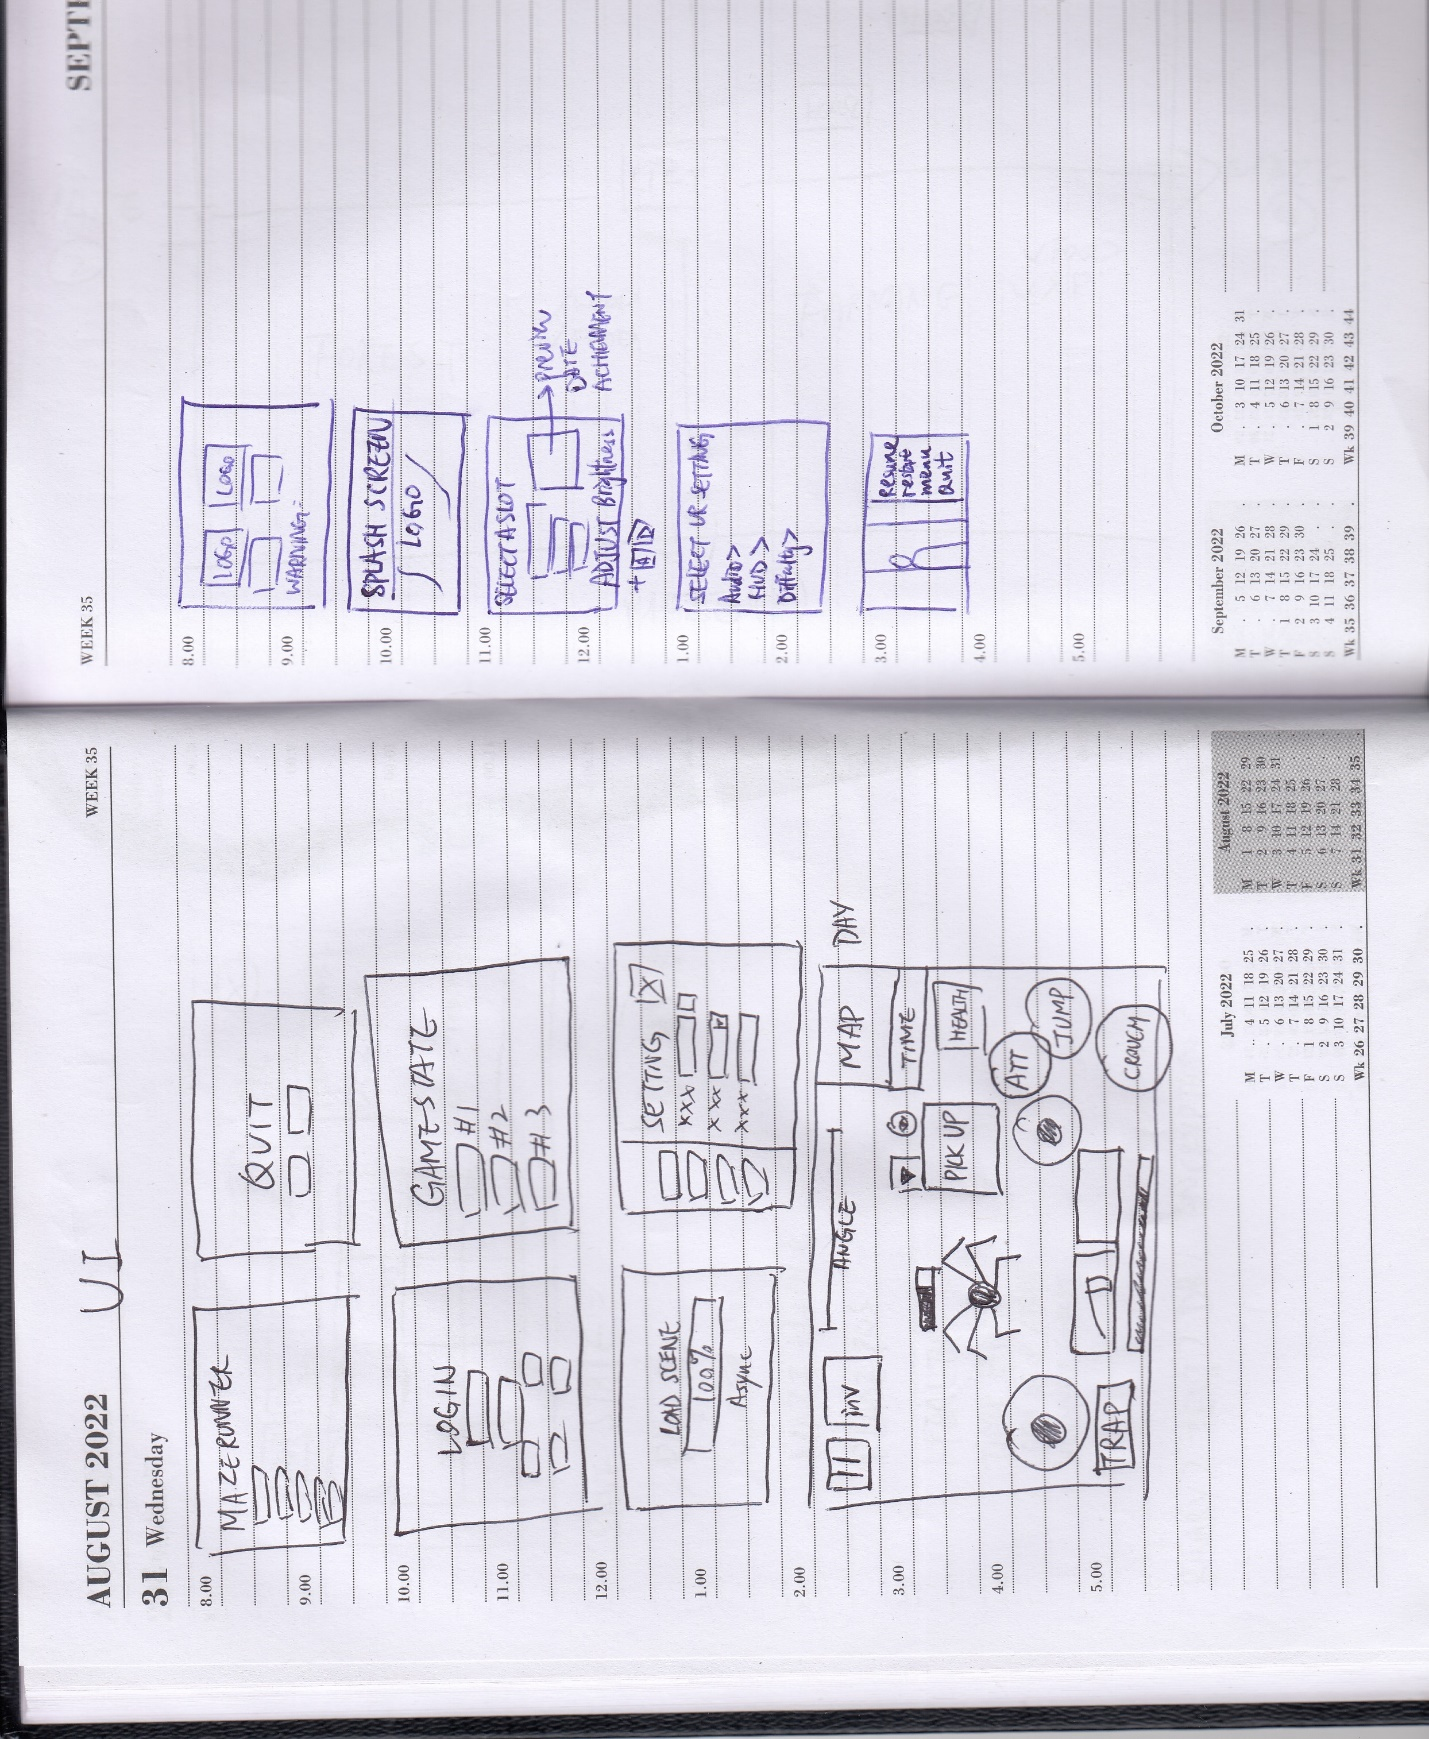 AUGUST 2022
UI
WEEK 35
31 Wednesday
8.00
9.00
10.00
11.00
12.00
1.00
2.00
3.00
4.00
5.00
MAZE RUNNER
QUIT
LOGIN
GAMESTATE
#1
#2
#3
LOAD SCENE
100%
Async
SETTING X
xxx
xxx
xxx
inv
ANGLE
MAP
DAY
TIME
HEALTH
PICK UP
ATT
JUMP
CROUCH
TRAP
July 2022
M . 4 11 18 25 .
T . 5 12 19 26 .
W . 6 13 20 27 .
T . 7 14 21 28 .
F 1 8 15 22 29 .
S 2 9 16 23 30 .
S 3 10 17 24 31 .
Wk 26 27 28 29 30 .
August 2022
M 1 8 15 22 29 .
T 2 9 16 23 30 .
W 3 10 17 24 31 .
T 4 11 18 25 . .
F 5 12 19 26 . .
S 6 13 20 27 . .
S 7 14 21 28 . .
Wk 31 32 33 34 35 .
WEEK 35
SEPTE
8.00
9.00
10.00
11.00
12.00
1.00
2.00
3.00
4.00
5.00
LOGO LOGO
WARNING:
SPLASH SCREEN
LOGO
SELECT A SLOT
preview
DATE
ACHIEMENT
ADJUST Brightness
SELECT UR SETTING
Audio>
HUD>
Difficulty>
Resume
restart
menu
Quit
September 2022
M . 5 12 19 26 .
T . 6 13 20 27 .
W . 7 14 21 28 .
T 1 8 15 22 29 .
F 2 9 16 23 30 .
S 3 10 17 24 . .
S 4 11 18 25 . .
Wk 35 36 37 38 39 .
October 2022
M . 3 10 17 24 31
T . 4 11 18 25 .
W . 5 12 19 26 .
T . 6 13 20 27 .
F . 7 14 21 28 .
S 1 8 15 22 29 .
S 2 9 16 23 30 .
Wk 39 40 41 42 43 44